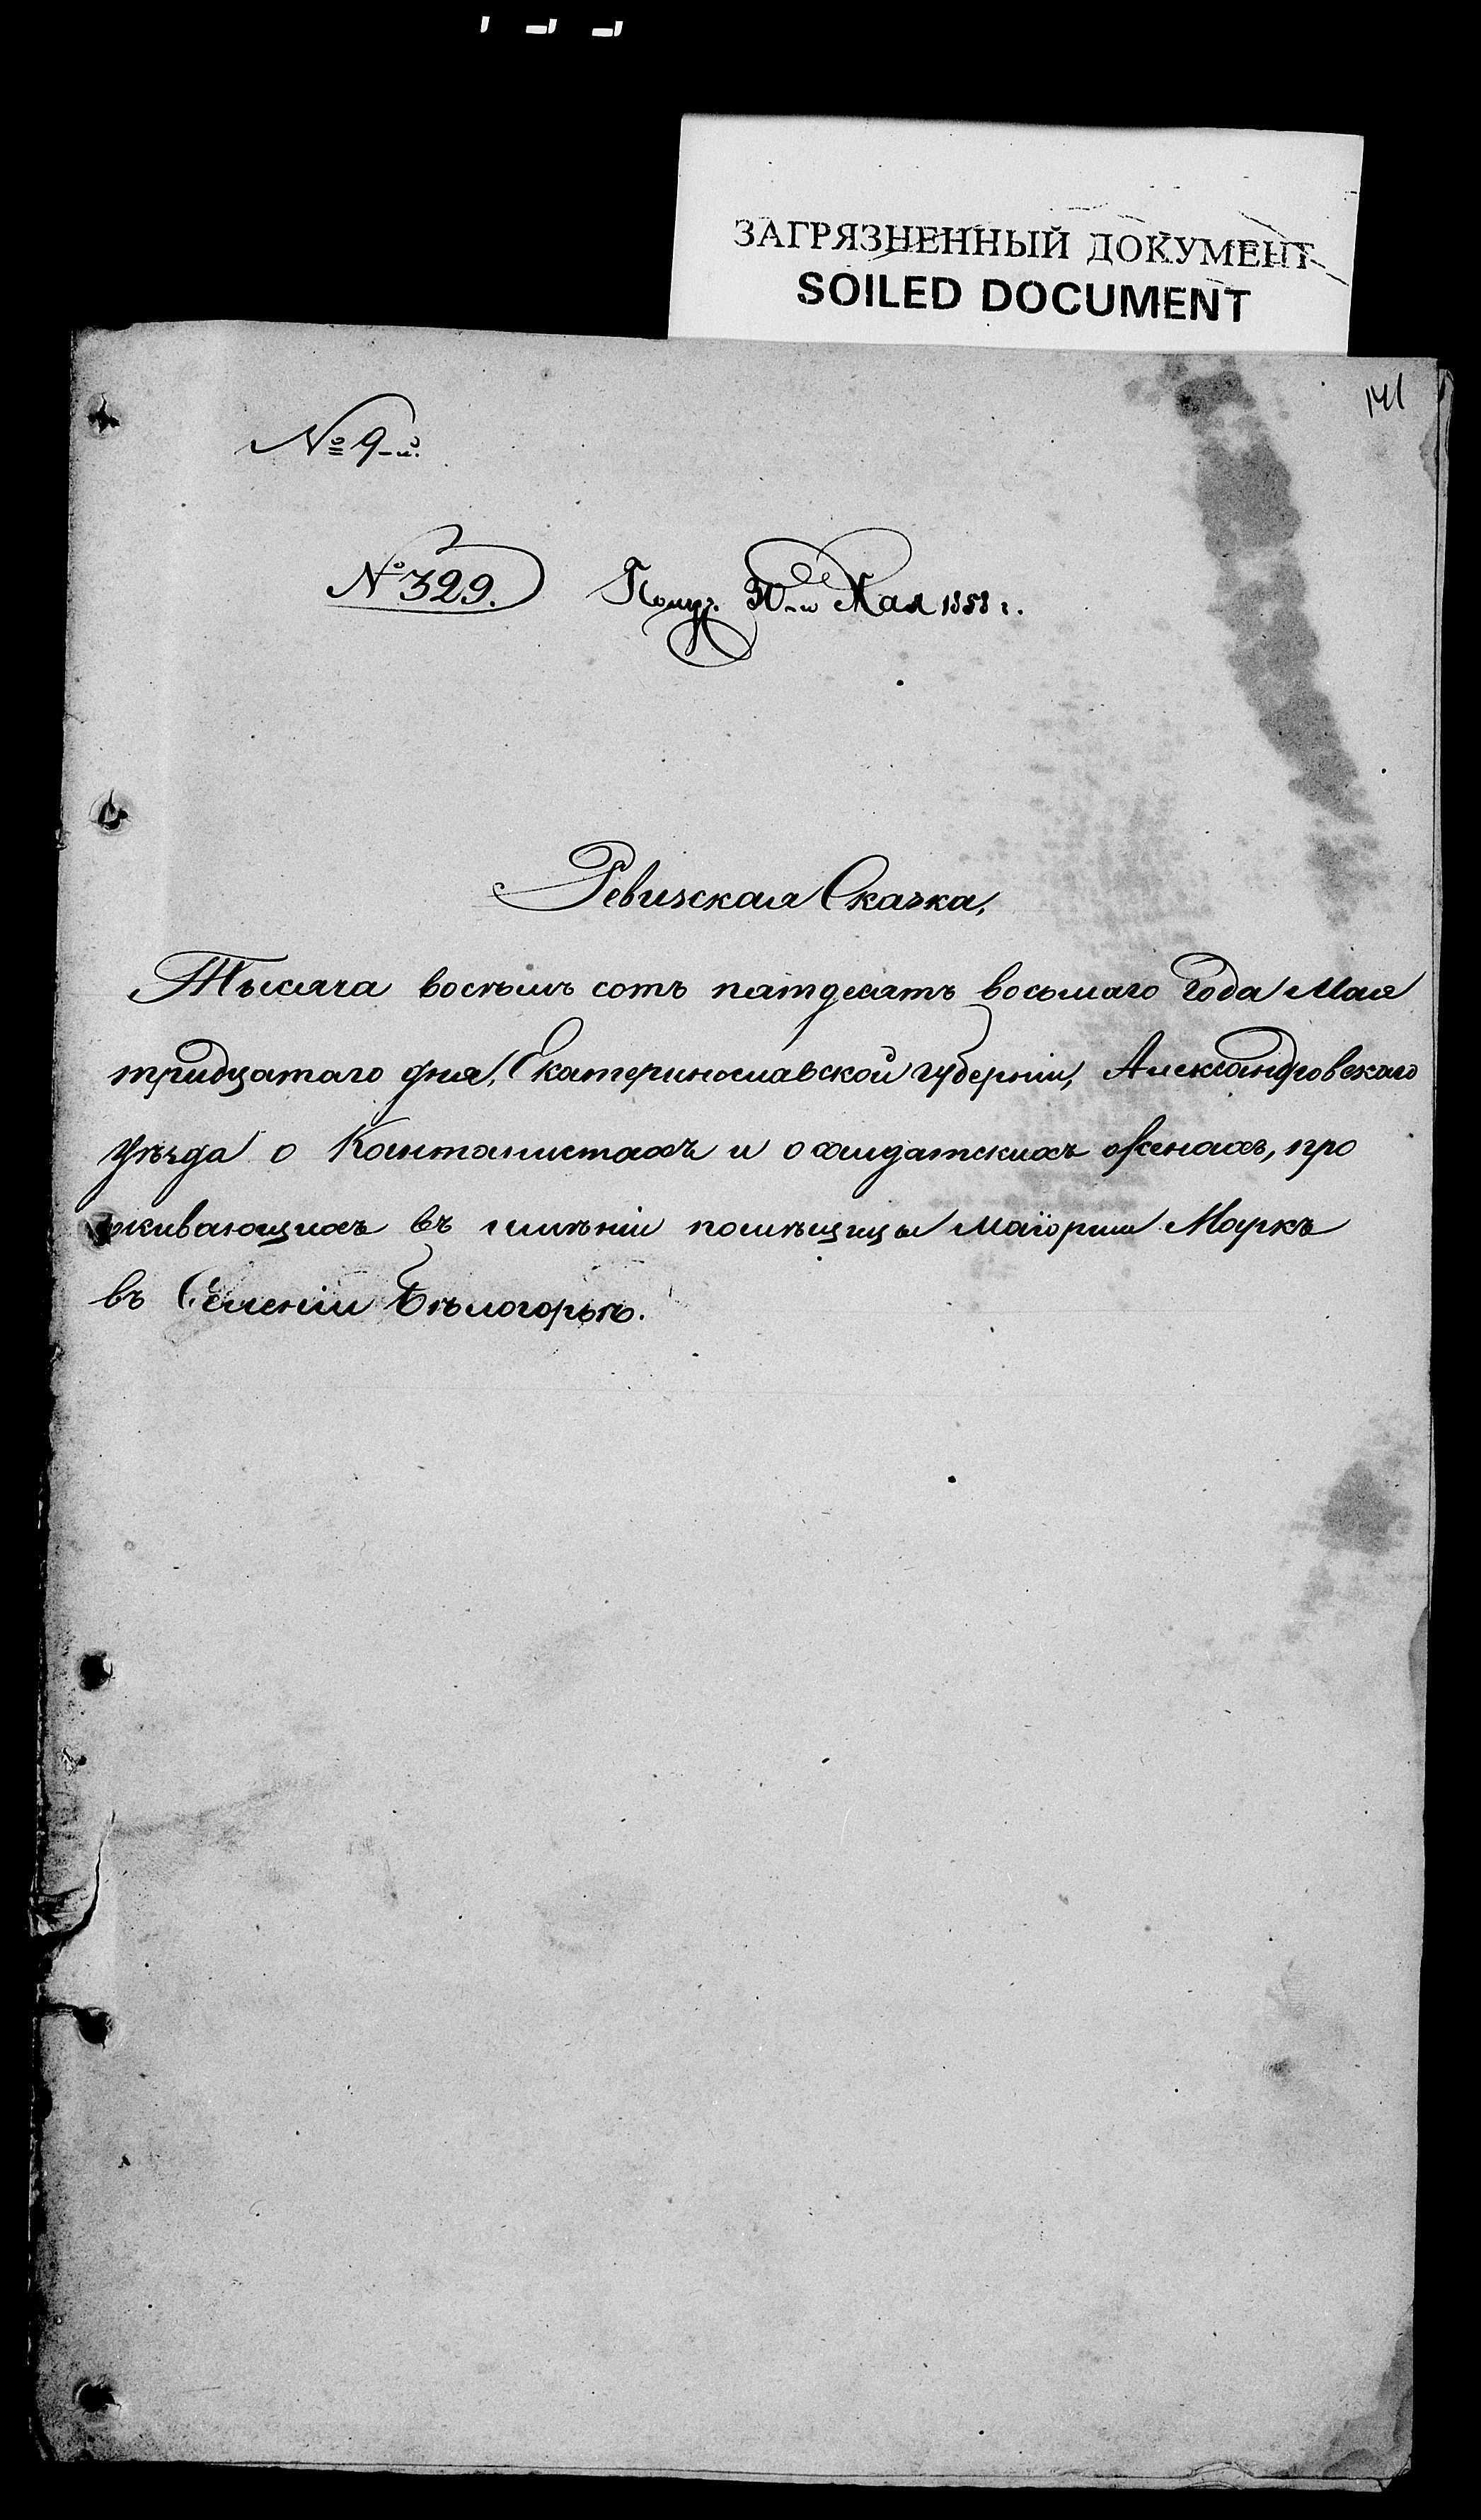 ЗАГРЯЗНЕННЫЙ ДОКУМЕНТ
SOILED DOCUMENT
141
№ 9-й.
№ 329. Получ. 30-го Мая 1858 г.
Ревизская Сказка,
Тысяча восьмъ сотъ пятдесятъ восьмаго года Мая
тридцатаго дня, Екатеринославской губерніи, Александровскаго
уѣзда о Кантанистахъ и о салдатскихъ женахъ, про
живающихъ въ имѣніи помѣщицы маіорши Маркъ
въ Селеніи Бѣлогорьѣ.